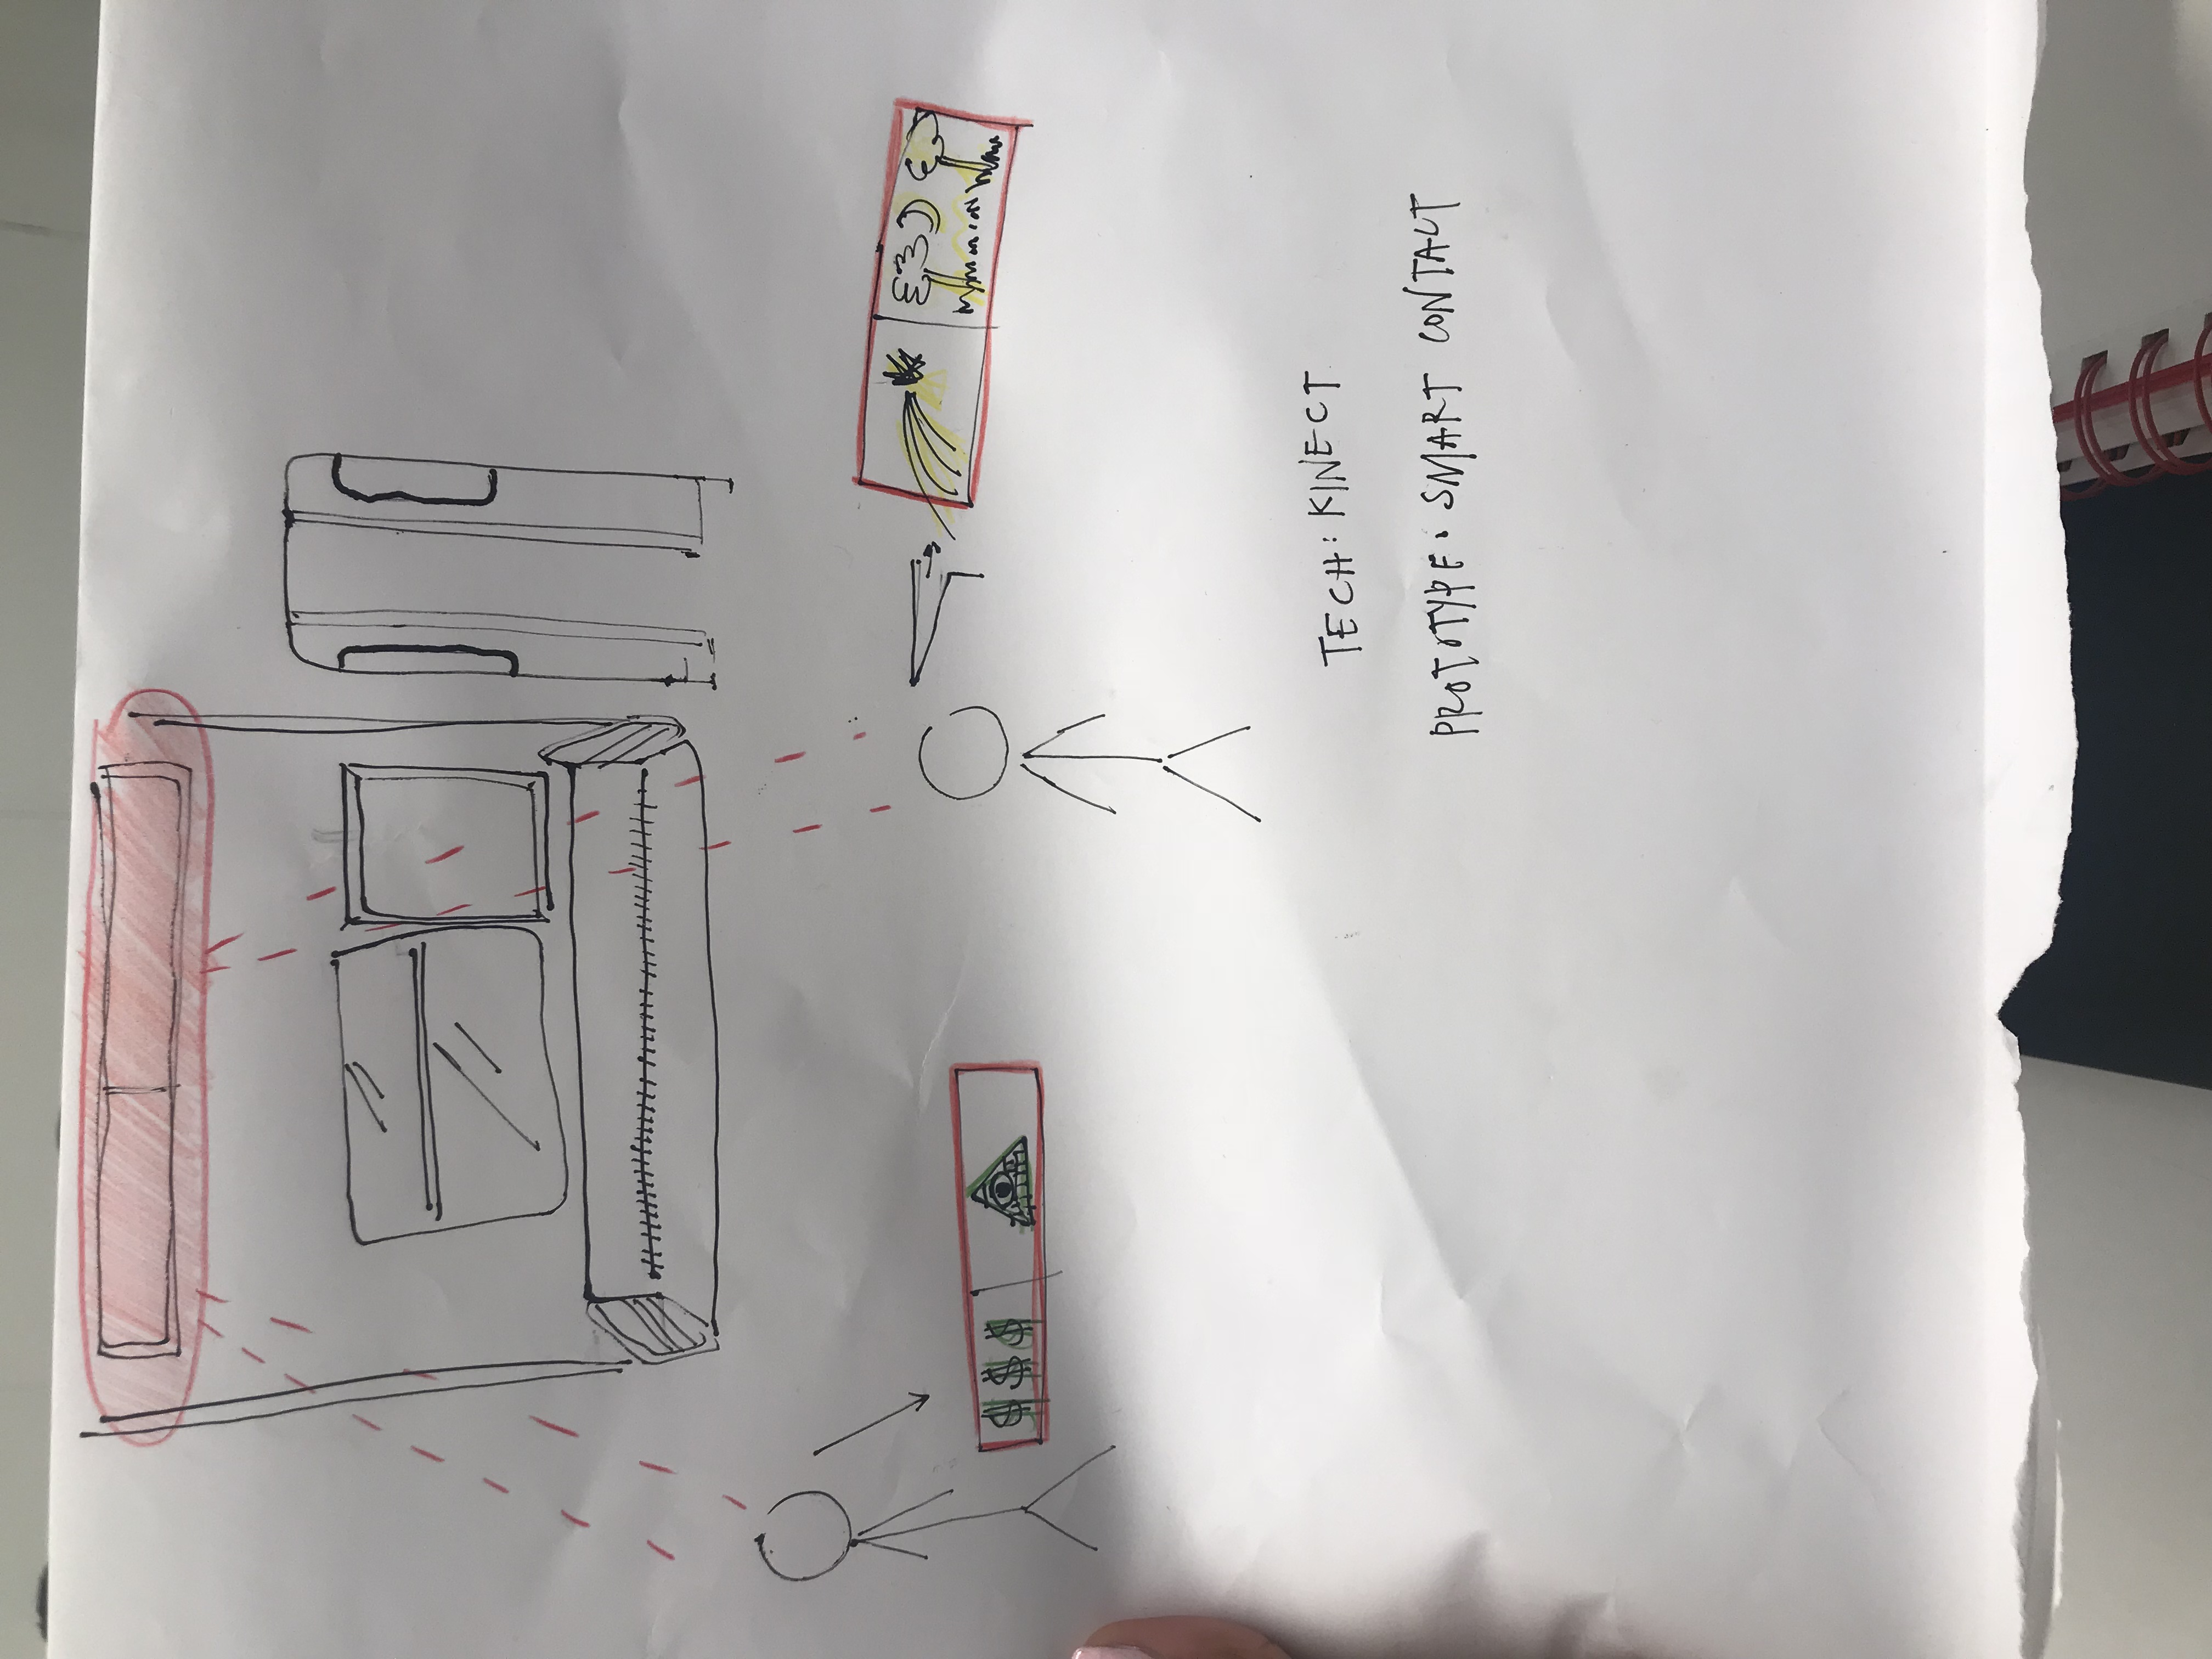 $ $ $
TECH: KINECT
PROTOTYPE: SMART CONTACT